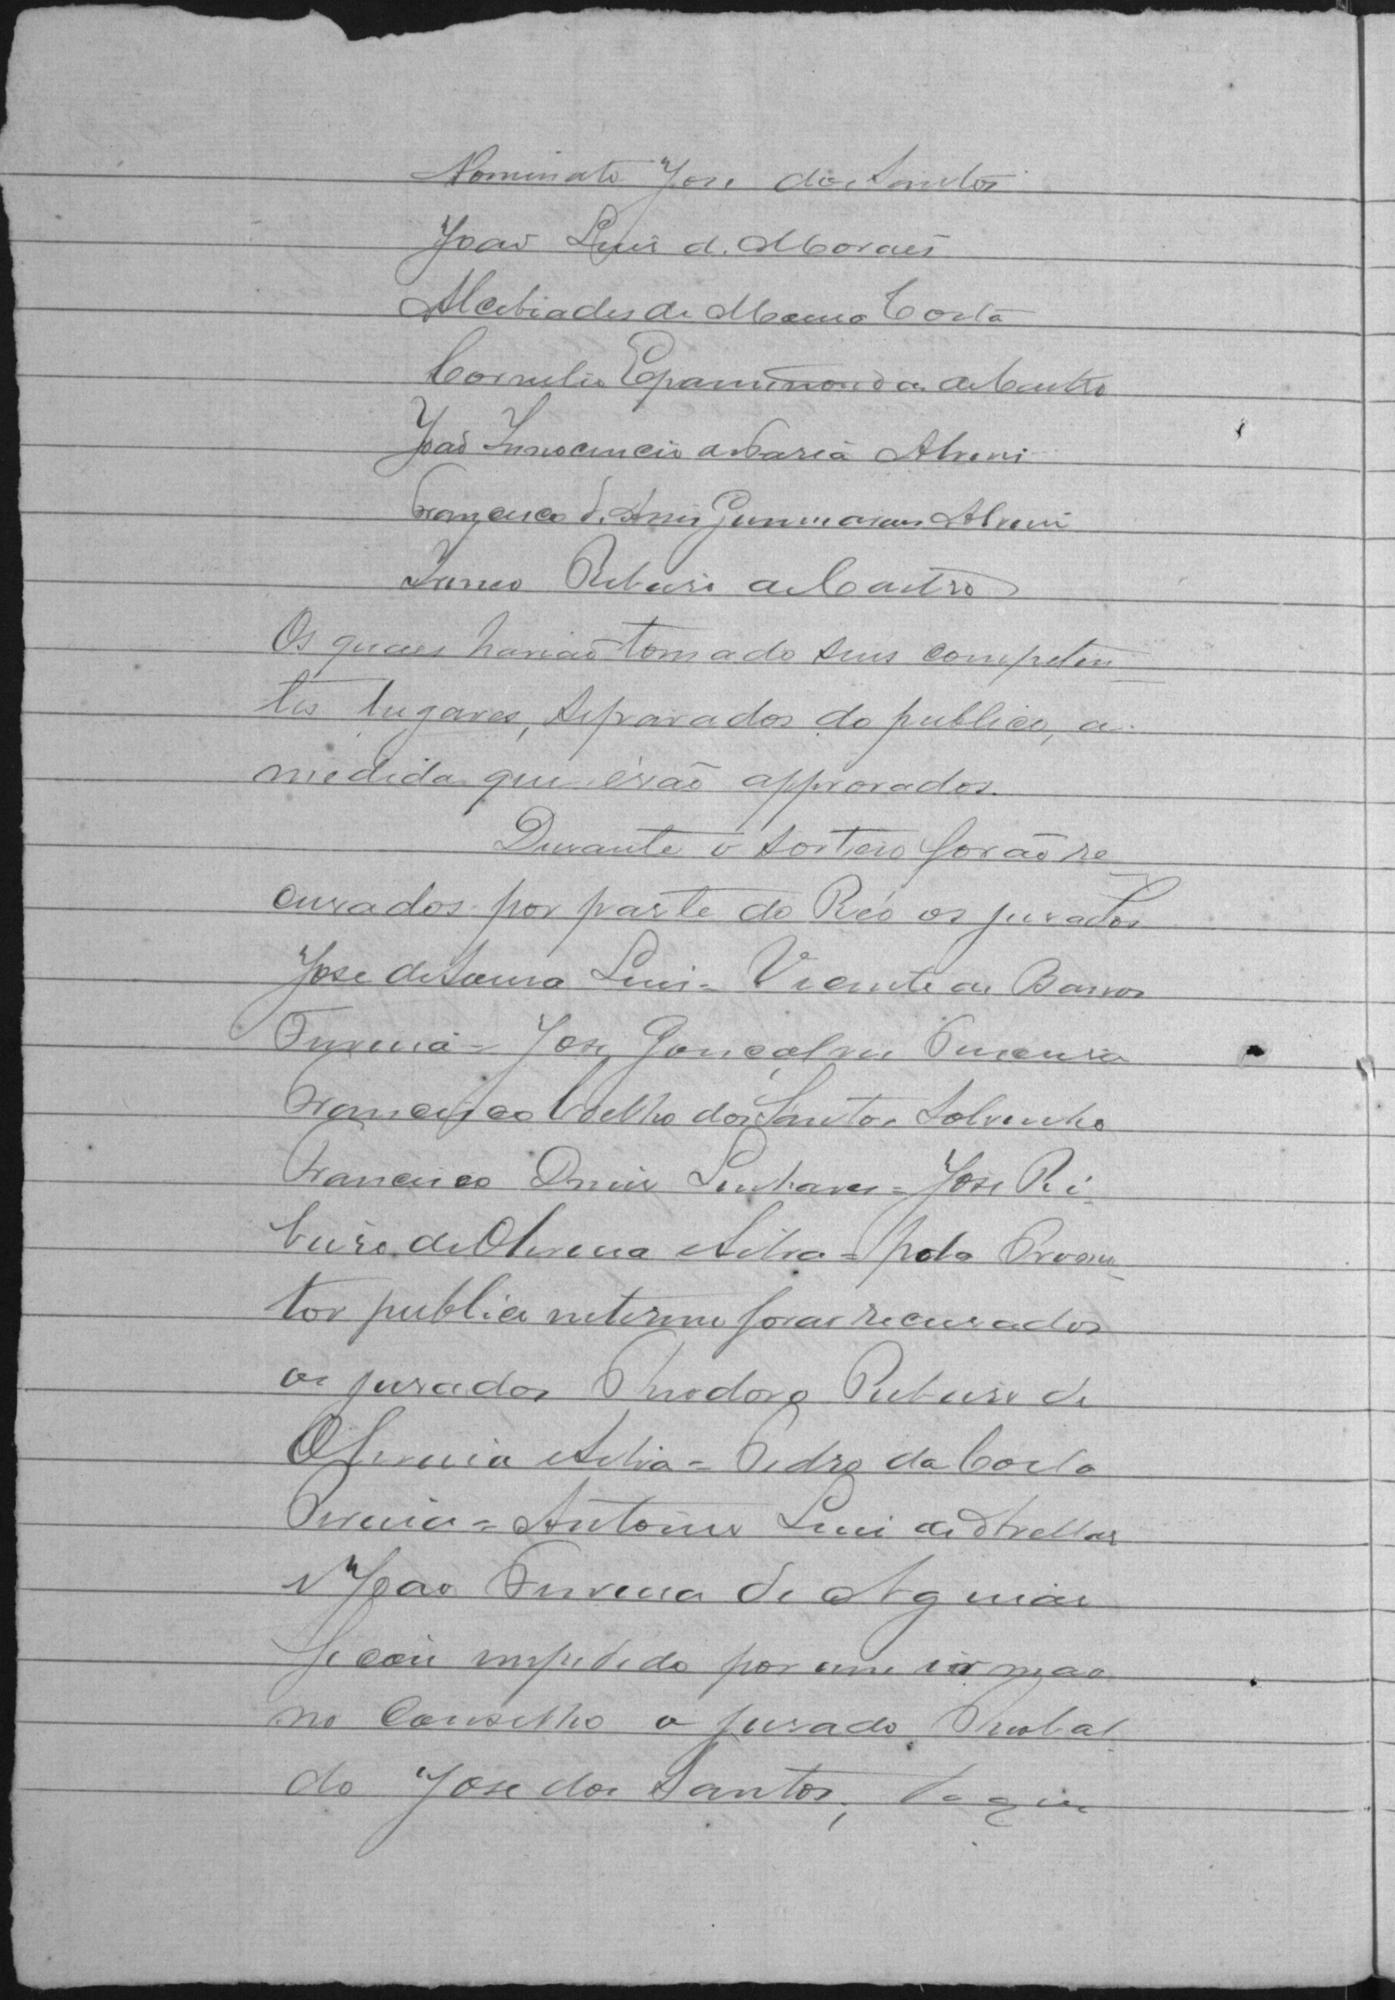 Nominato Jose dos Santos
João Luis d. Moraes
Alcebiades de Costa
Cornelio Epaminondas de Castro
João Innocencio de Faria Alvim
Francisco d. Assis Guimaraes Alvim
Ribeiro de Castro
Os quaes havião tomado seus competen-
tes lugares, separados do publico, a
medida que érão approvados.
Durante o sorteio forão re
cusados por parte do Réo os jurados
Jose de Luis = Vicente de Barros
Ferreira = Jose Gonçalves
Francisco Coelho dos Santos Sobrinho
Francisco Diniz Linhares = Jose Ri-
beiro de Oliveira e Silva = pelo Promo-
tor publico interino forão recusados
os jurados Theodoro Ribeiro de
Oliveira e Silva = Pedro da Costa
Pereira = Antonio Luis de
e João Ferreira de Aguiar
Ficou impedido por um irmão
no Conselho o jurado Theobal
do Jose dos Santos;